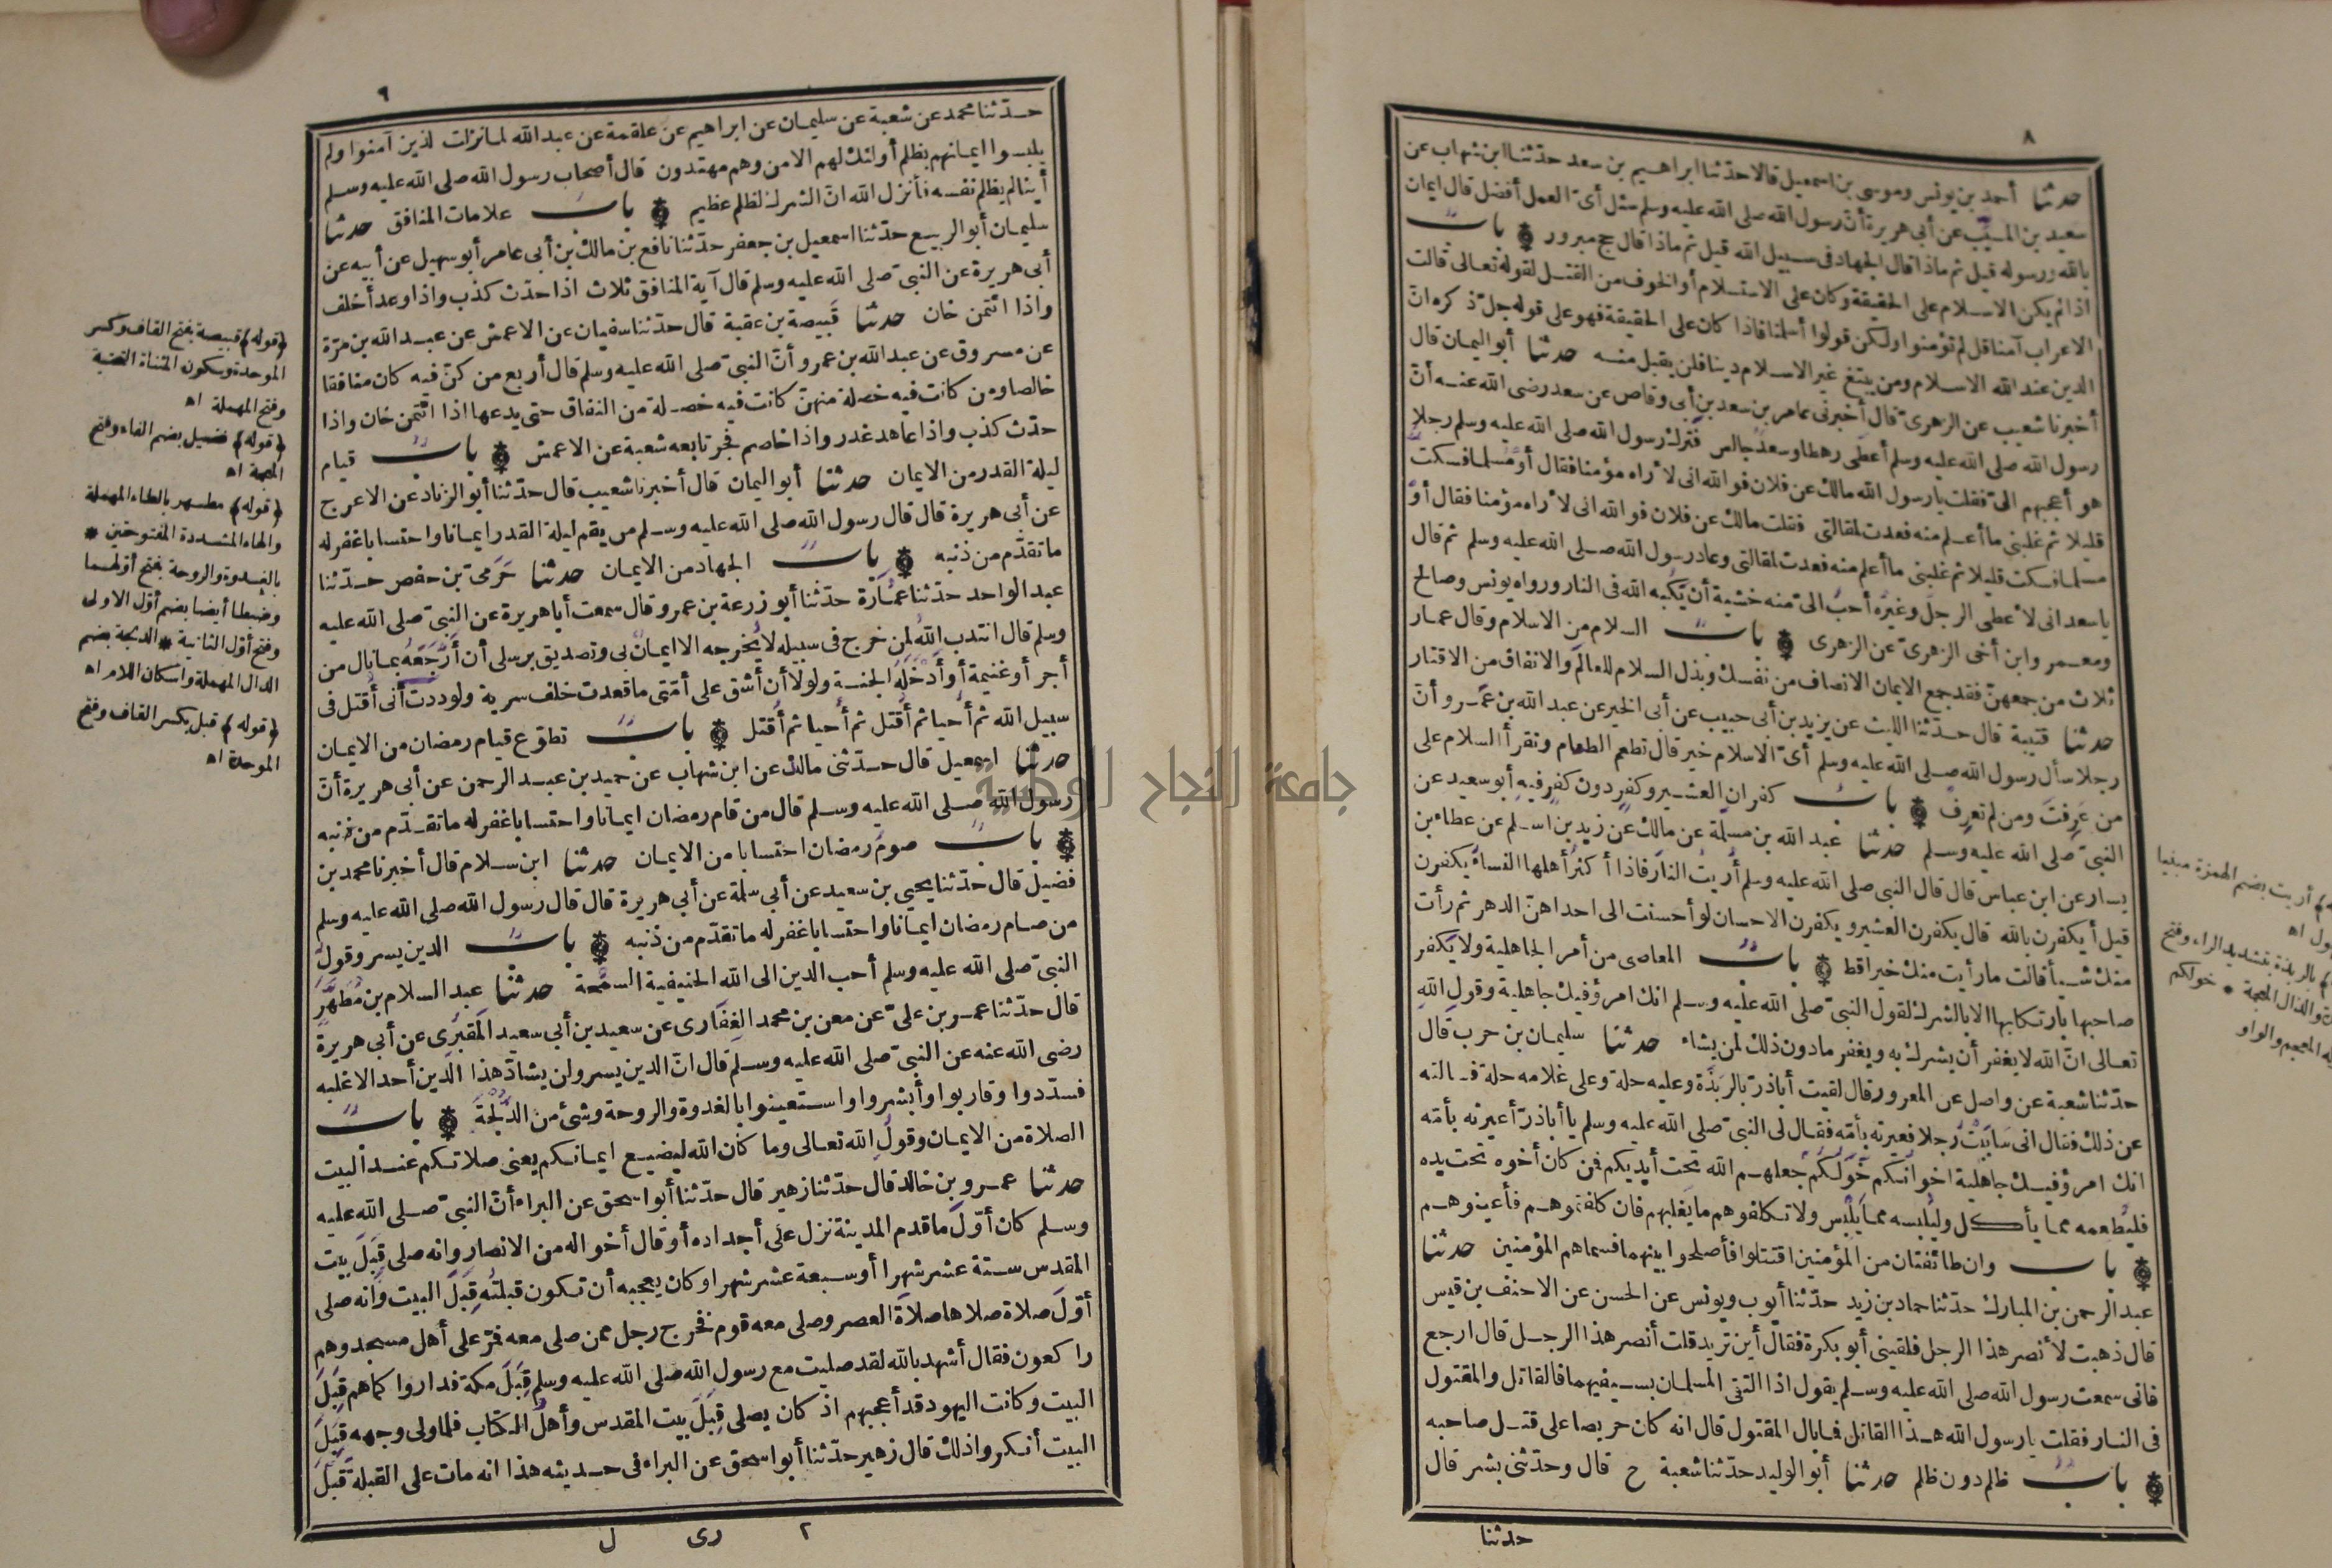 ٨
حدثنا أحمد بن يونس وموسى بن اسمعيل قالا حدثنا ابراهيم بن سعد حدّثنا ابن شهاب عن
سعيد بن المسيّب عن أبى هريرة أنّ رسول الله صلى الله عليه وسلم سئل أىّ العمل أفضل قال ايمان
بالله ورسوله قيل ثم ماذا قال الجهاد فى سبيل الله قيل ثم ماذا قال حج مبرور باب
اذا لم يكن الاسلام على الحقيقة وكان على الاستسلام أو الخوف من القتل لقوله تعالى قالت
الاعراب آمنا قل لم تؤمنوا ولكن قولوا أسلمنا فاذا كان على الحقيقة فهو على قوله جلّ ذكره انّ
الدين عند الله الاسلام ومن يبتغ غير الاسلام دينا فلن يقبل منه حدثنا أبو اليمان قال
أخبرنا شعيب عن الزهرىّ قال أخبرنى عامر بن سعد بن أبى وقاص عن سعد رضى الله عنه أنّ
رسول الله صلى الله عليه وسلم أعطى رهطا وسعد جالس فترك رسول الله صلى الله عليه وسلم رجلا
هو أعجبهم الىّ فقلت يا رسول الله مالك عن فلان فو الله انى لأراه مؤمنا فقال أو مسلما فسكت
قليلا ثم غلبنى ما أعلم منه فعدت لمقالتى فقلت مالك عن فلان فو الله انى لأراه مؤمنا فقال أو
مسلما فسكت قليلا ثم غلبنى ما أعلم منه فعدت لمقالتى وعاد رسول الله صلى الله عليه وسلم ثم قال
يا سعد انى لأعطى الرجل وغيره أحبّ الىّ منه خشية أن يكبه الله فى النار ورواه يونس وصالح
ومعمر وابن أخى الزهرىّ عن الزهرى باب السلام من الاسلام وقال عمار
ثلاث من جمعهنّ فقد جمع الايمان الانصاف من نفسك وبذل السلام للعالم والانفاق من الاقتار
حدثنا قتيبة قال حدّثنا الليث عن يزيد بن أبى حبيب عن أبى الخير عن عبد الله بن عمرو أنّ
رجلا سأل رسول الله صلى الله عليه وسلم أىّ الاسلام خير قال تطعم الطعام وتقرأ السلام على
من عرفت ومن لم تعرف باب كفران العشير وكفر دون كفر فيه أبو سعيد عن
النبىّ صلى الله عليه وسلم حدثنا عبد الله بن مسلمة عن مالك عن زيد بن اسلم عن عطاء بن
يسار عن ابن عباس قال قال النبى صلى الله عليه وسلم أريت النار فاذا أكثر أهلها النساء يكفرن
قيل أيكفرن بالله قال يكفرن العشير ويكفرن الاحسان لو أحسنت الى احداهنّ الدهر ثم رأت
منك شيأ قالت ما رأيت منك خيرا قط باب المعاصى من أمر الجاهلية ولا يكفر
صاحبها بارتكابها الا بالشرك لقول النبىّ صلى الله عليه وسلم انك امرؤ فيك جاهلية وقول الله
تعالى انّ الله لا يغفر أن يشرك به ويغفر ما دون ذلك لمن يشاء حدثنا سليمان بن حرب قال
حدّثنا شعبة عن واصل عن المعرور قال لقيت أباذر بالربذة وعليه حلة وعلى غلامه حلة فسألته
عن ذلك فقال انى ساببت رجلا فعيرته بأمّه فقال لى النبىّ صلى الله عليه وسلم يا أباذرّ أعيرته بأمّه
انك امرؤ فيك جاهلية اخوانكم خولكم جعلهم الله تحت أيديكم فمن كان أخوه تحت يده
فليطعمه مما يأكل وليلبسه مما يلبس ولا تكلفوهم ما يغلبهم فان كلفتموهم فأعينوهم
باب وان طائفتان من المؤمنين اقتتلوا فأصلحوا بينهما فسماهم المؤمنين حدثنا
عبد الرحمن بن المبارك حدّثنا حماد بن زيد حدّثنا أيوب ويونس عن الحسن عن الاحنف بن قيس
قال ذهبت لأنصر هذا الرجل فلقينى أبو بكرة فقال أين تريد قلت أنصر هذا الرجل قال ارجع
فانى سمعت رسول الله صلى الله عليه وسلم يقول اذا التقى المسلمان بسيفيهما فالقاتل والمقتول
فى النار فقلت يا رسول الله هذا القاتل فما بال المقتول قال انه كان حريصا على قتل صاحبه
باب ظلم دون ظلم حدثنا أبو الوليد حدّثنا شعبة ح قال وحدّثنى بشر قال
حدثنا
أريت بضم الهمزة مبنيا
اه
بالربذة بتشديد الراء وفتح
والذال المعجمة * خولكم
المعجم والواو
٩
حدّثنا محمد عن شعبة عن سليمان عن ابراهيم عن علقمة عن عبد الله لما نزلت الذين آمنوا ولم
يلبسوا ايمانهم بظلم أولئك لهم الامن وهم مهتدون قال أصحاب رسول الله صلى الله عليه وسلم
أينا لم يظلم نفسه فأنزل الله انّ الشرك لظلم عظيم باب علامات المنافق حدثنا
سليمان أبو الربيع حدّثنا اسمعيل بن جعفر حدّثنا نافع بن مالك بن أبى عامر أبو سهيل عن أبيه عن
أبى هريرة عن النبىّ صلى الله عليه وسلم قال آية المنافق ثلاث اذا حدّث كذب واذا وعد أخلف
واذا ائتمن خان حدثنا قبيصة بن عقبة قال حدّثنا سفيان عن الاعمش عن عبد الله بن مرّة
عن مسروق عن عبد الله بن عمرو أنّ النبىّ صلى الله عليه وسلم قال أربع من كنّ فيه كان منافقا
خالصا ومن كانت فيه خصلة منهنّ كانت فيه خصلة من النفاق حتى يدعها اذا ائتمن خان واذا
حدّث كذب واذا عاهد غدر واذا خاصم فجر تابعه شعبة عن الاعمش باب قيام
ليلة القدر من الايمان حدثنا أبو اليمان قال أخبرنا شعيب قال حدّثنا أبو الزناد عن الاعرج
عن أبى هريرة قال قال رسول الله صلى الله عليه وسلم من يقم ليلة القدر ايمانا واحتسابا غفر له
ما تقدّم من ذنبه باب الجهاد من الايمان حدثنا حرمىّ بن حفص حدّثنا
عبد الواحد حدّثنا عمارة حدّثنا أبو زرعة بن عمرو قال سمعت أبا هريرة عن النبىّ صلى الله عليه
وسلم قال انتدب الله لمن خرج فى سبيله لا يخرجه الا ايمان بى وتصديق برسلى أن أرجعه بما نال من
أجر أو غنيمة أو أدخله الجنة ولولا أن أشق على أمّتى ما قعدت خلف سرية ولوددت أنى أقتل فى
سبيل الله ثم أحيا ثم أقتل ثم أحيا ثم أقتل باب تطوّع قيام رمضان من الايمان
حدثنا اسمعيل قال حدّثنى مالك عن ابن شهاب عن حميد بن عبد الرحمن عن أبى هريرة أنّ
رسول الله صلى الله عليه وسلم قال من قام رمضان ايمانا واحتسابا غفر له ما تقدّم من ذنبه
باب صوم رمضان احتسابا من الايمان حدثنا ابن سلام قال أخبرنا محمد بن
فضيل قال حدّثنا يحيى بن سعيد عن أبى سلمة عن أبى هريرة قال قال رسول الله صلى الله عليه وسلم
من صام رمضان ايمانا واحتسابا غفر له ما تقدّم من ذنبه باب الدين يسر وقول
النبىّ صلى الله عليه وسلم أحب الدين الى الله الحنيفية السمحة حدثنا عبد السلام بن مطهر
قال حدّثنا عمر بن علىّ عن معن بن محمد الغفارى عن سعيد بن أبى سعيد المقبرى عن أبى هريرة
رضى الله عنه عن النبىّ صلى الله عليه وسلم قال انّ الدين يسر ولن يشادّ هذا الدين أحد الا غلبه
فسدّدوا وقاربوا وأبشروا واستعينوا بالغدوة والروحة وشئ من الدلجة باب
الصلاة من الايمان وقول الله تعالى وما كان الله ليضيع ايمانكم يعنى صلاتكم عند البيت
حدثنا عمرو بن خالد قال حدّثنا زهير قال حدّثنا أبو اسحق عن البراء أنّ النبىّ صلى الله عليه
وسلم كان أوّل ما قدم المدينة نزل على أجداده أو قال أخواله من الانصار وانه صلى قبل بيت
المقدس ستة عشر شهرا أو سبعة عشر شهرا وكان يعجبه أن تكون قبلته قبل البيت وانه صلى
أوّل صلاة صلاها صلاة العصر وصلى معه قوم فخرج رجل ممن صلى معه فمرّ على أهل مسجد وهم
راكعون فقال أشهد بالله لقد صليت مع رسول الله صلى الله عليه وسلم قبل مكة فداروا كما هم قبل
البيت وكانت اليهود قد أعجبهم اذ كان يصلى قبل بيت المقدس وأهل الكتاب فلما ولى وجهه قبل
البيت أنكروا ذلك قال زهير حدّثنا أبو اسحق عن البراء فى حديثه هذا انه مات على القبلة قبل
٢ رى ل
﴿قوله﴾ قبيصة بفتح القاف وكسر
الموحدة وسكون المثناة التحتية
وفتح المهملة اه
﴿قوله﴾ فضيل بضم الفاء وفتح
المعجمة اه
﴿قوله﴾ مطهر بالطاء المهملة
والهاء المشددة المفتوحتين *
بالغدوة والروحة بفتح أولهما
وضبطا أيضا بضم أوّل الاولى
وفتح أوّل الثانية * الدلجة بضم
الدال المهملة واسكان اللام اه
﴿قوله﴾ قبل بكسر القاف وفتح
الموحدة اه
جامعة النجاح الوطنية